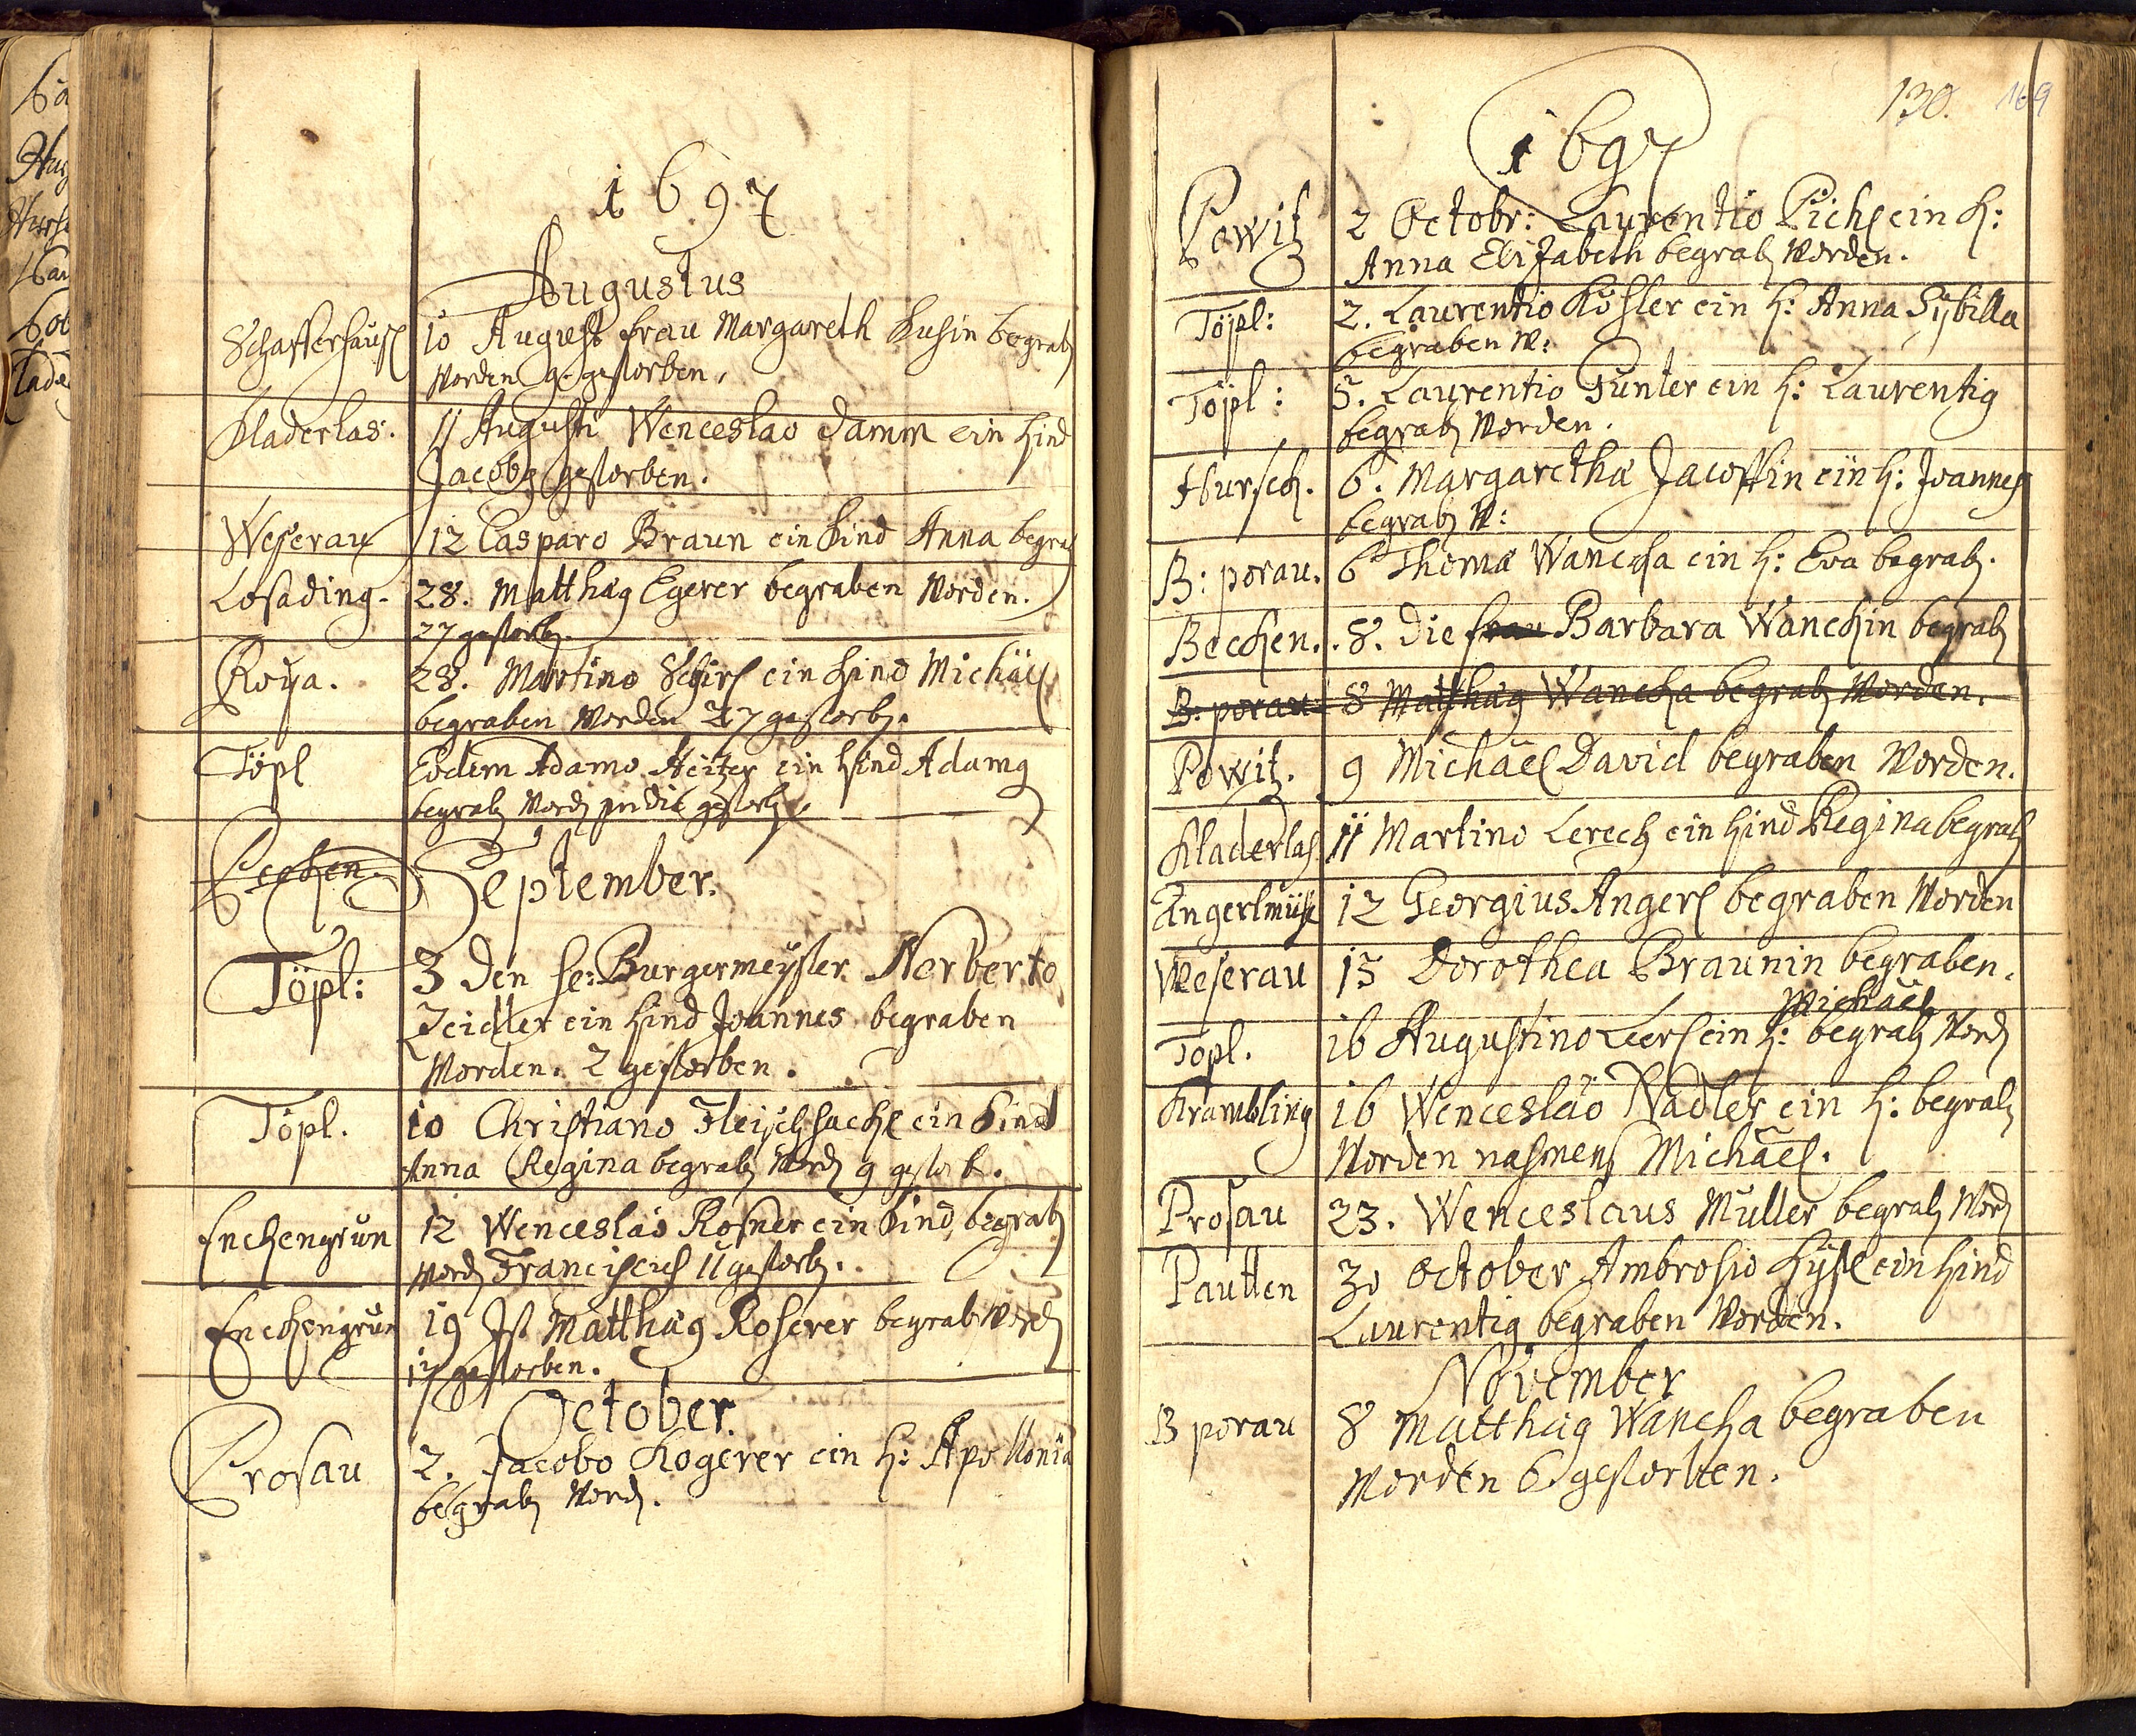 1697
Augustus
Schafferhäuß 10 August frau Margareth Kusin begrab
Worden 9 gestorben.
Kladerlas. 11 Augusti Wenceslao Damm ein Kind
Jacobg gestorben.
Weserau 12 Casparo Braun ein Kind Anna begra
Losading. 28. Matthäg Egerer begraben Worden.
27 gestorb.
Roÿa. 28. Martino ein Kind Michäel
begraben Worden 27 gestorb.
Töpl Eodem Adamo ein Kind Adamg
begrab Word pridie gestorb.
September.
Töpl: 3 Den He: Burgermeÿster Norberto
Zeidler ein Kind Joannes begraben
Worden. 2 gestorben.
Töpl. 10 Christiano ein Kind
Anna Regina begrab Word 9 gestorb.
Enckengrün 12 Wenceslao Rosner ein Kind begrab
Word Franciscus 11 gestorb.
Enckengrün 19 Ist Matthäg Roserer begrab Word
17 gestorben.
October.
Prosau 2. Jacobo Kogerer ein K: Apollonia
begrab Word.
130. 169
1697
Powitz 2 Octobr: Laurentio Pichl ein K:
Anna Elisabeth begrab Worden.
Töpl: 2. Laurentio Köhler ein K: Anna Sÿbilla
begraben W:
Töpl: 5. Laurentio Günter ein K: Laurentig
begrab Worden.
Hursch. 6. Margaretha Jacoffin ein K: Joannes
begrab W:
B: porau. 6 Thoma Wancka ein K: Eva begrab.
Becken. 8. Die frau Barbara Wanckin begrab
B: porau 8 Matthäg Wancka begrab Worden.
Powitz. 9 Michäel David begraben Worden.
Kladerlas 11 Martino Lerech ein Kind Regina begrab
Angerlmühl 12 Georgius Angerl begraben Worden
Weserau 15 Dorothea Braunin begraben.
Michäel
Töpl. 16 Augustino Leerl ein K: begrab Word
Krambling 16 Wenceslao Nadler ein K: begrab
Worden nahmens Michäel.
Prosau 23. Wenceslaus Müller begrab Word
Pautten 30 October Ambrosio ein Kind
Laurentig begraben Worden.
November
B porau 8 Matthäg Wancka begraben
Worden 6 gestorben.